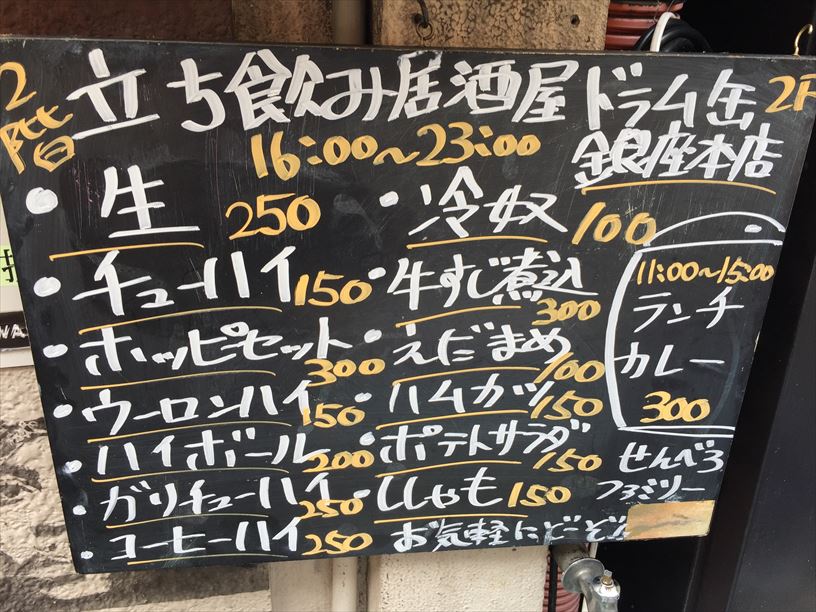 2階
立ち飲み居酒屋ドラム缶 2F
銀座本店
16:00~23:00
・生 250
・チューハイ 150
・ホッピセット 300
・ウーロンハイ 150
・ハイボール 200
・ガリチューハイ 250
・コーヒーハイ 250
・冷奴 100
・牛すじ煮込 300
・えだまめ 100
・ハムカツ 150
・ポテトサラダ 150
・ししゃも 150
お気軽にどうぞ
11:00~15:00
ランチ
カレー
300
せんべろ
ファミリー